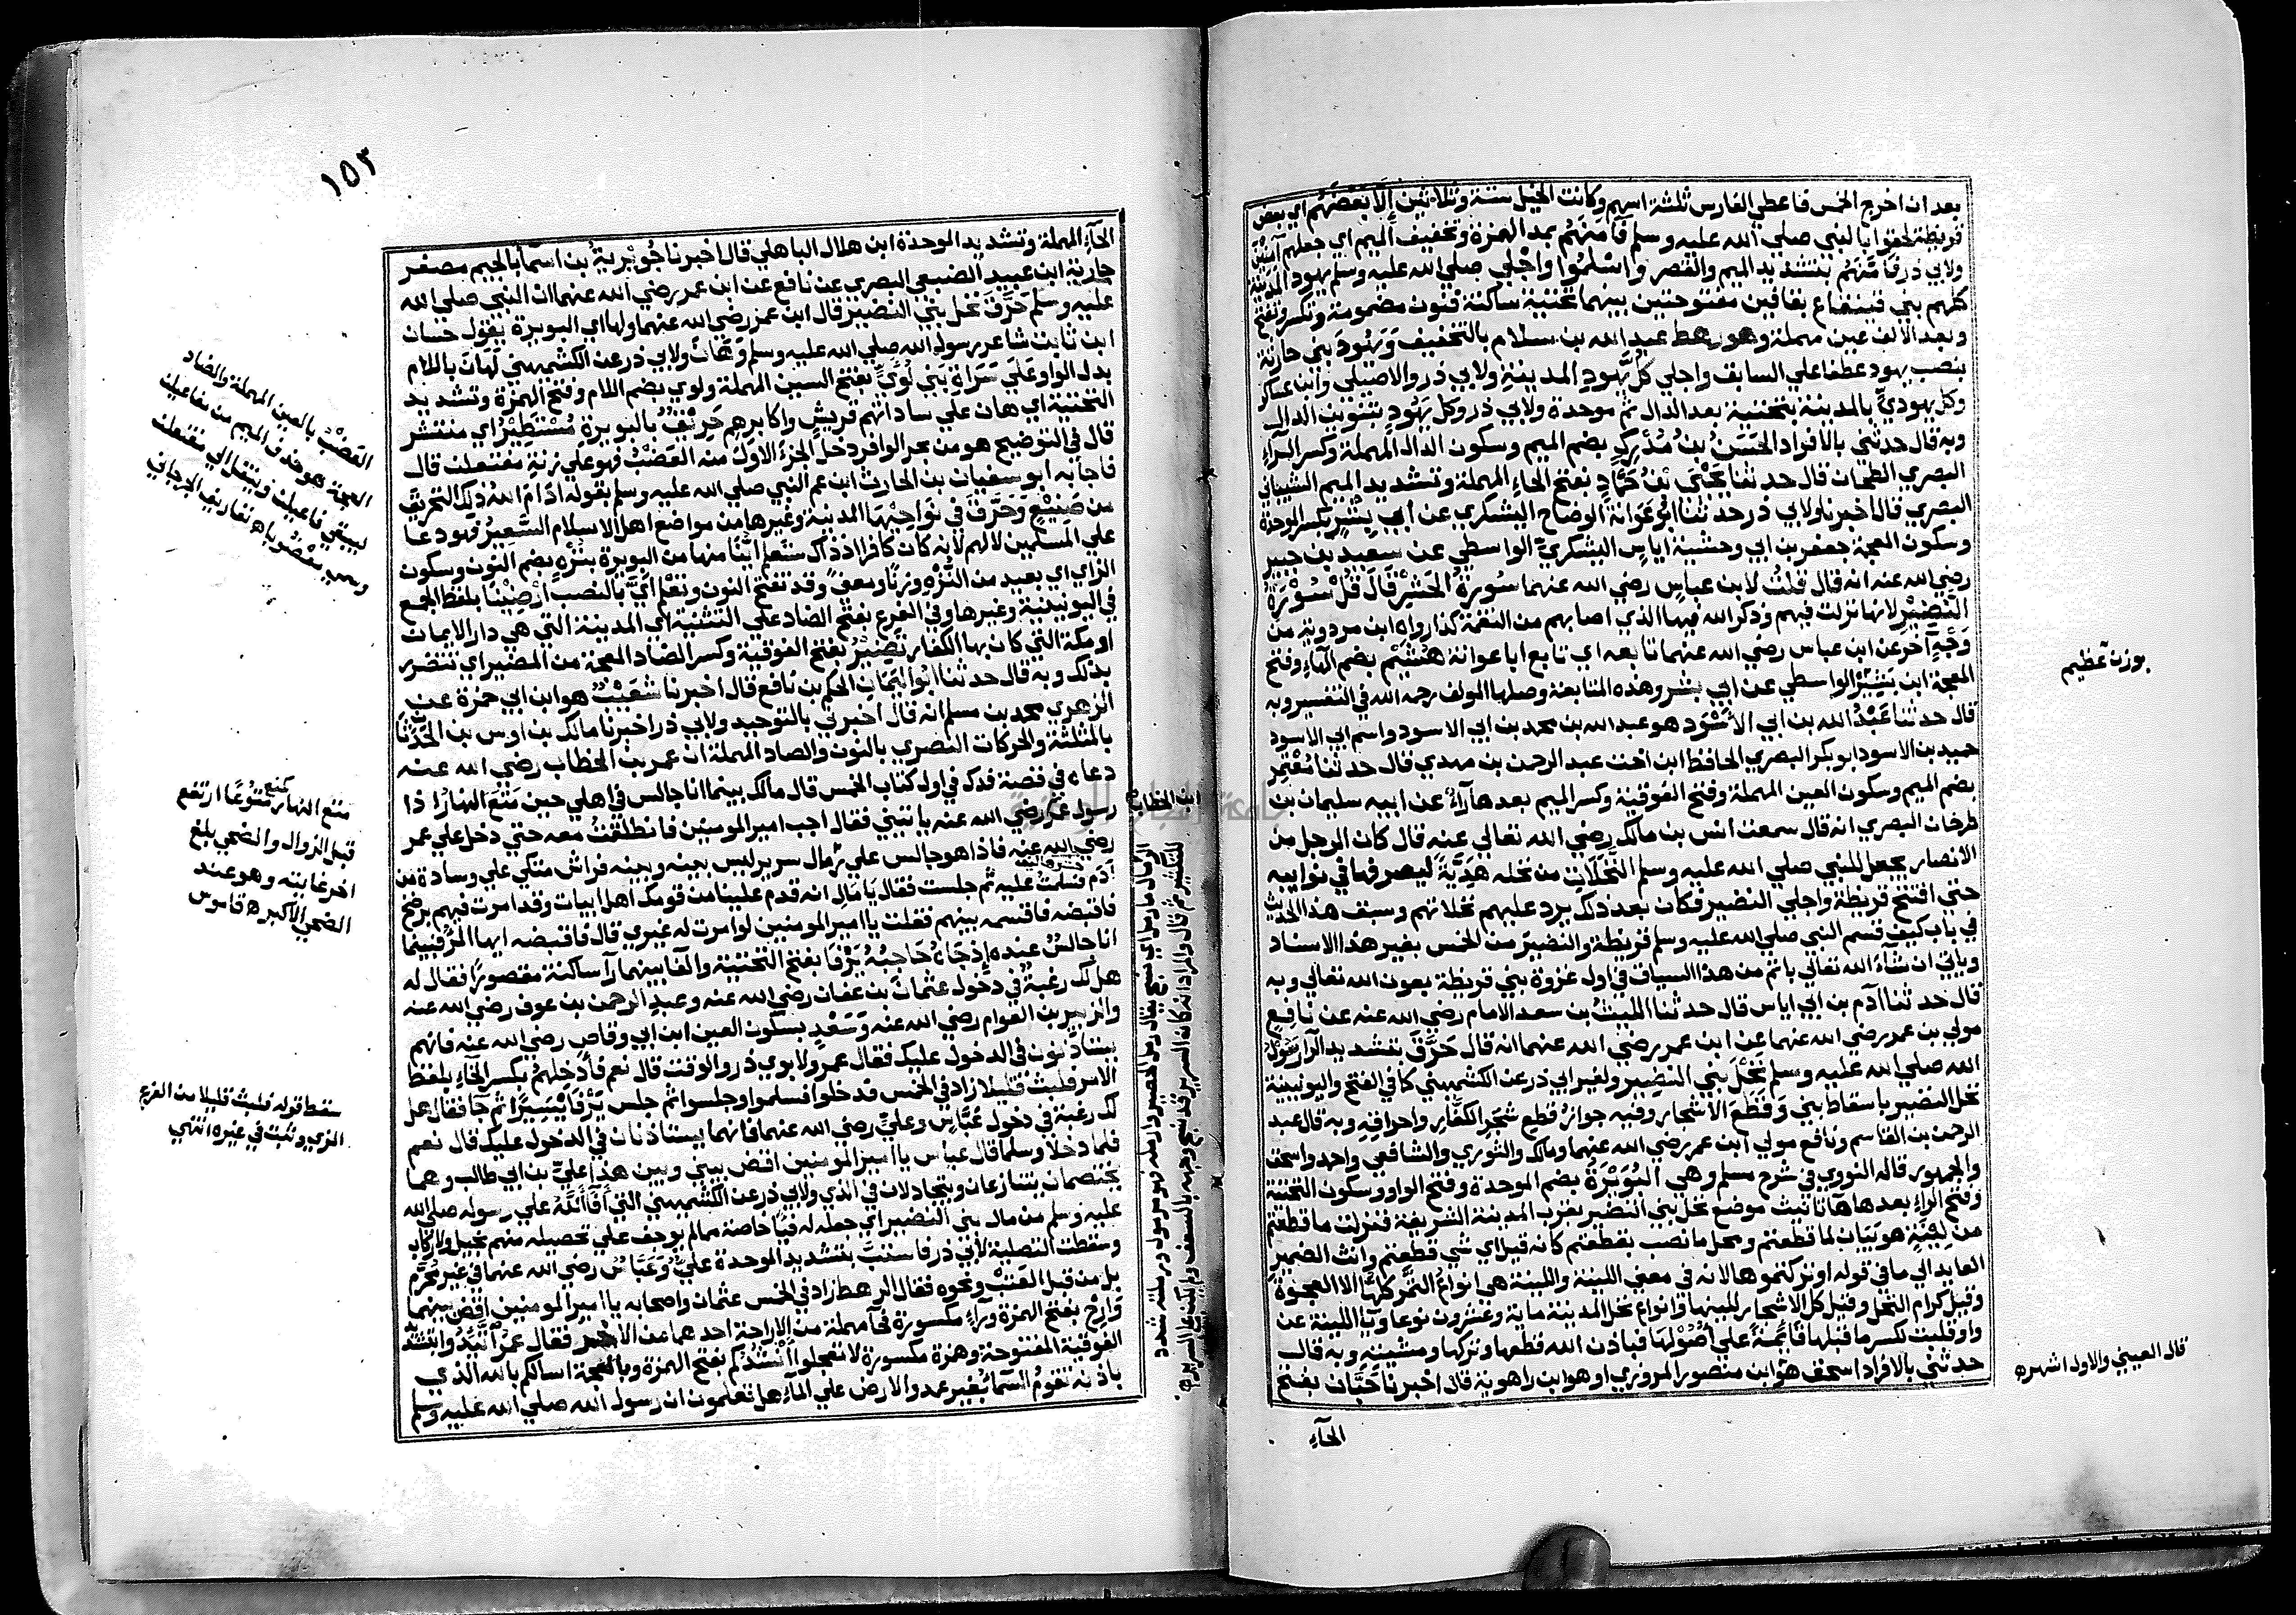 بعد ان اخرج الخمس فاعطي الفارس ثلثة اسهم وكانت الخيل ستة وثلاثين الا بعضهم اي بعض
قريظة لحقوا بالنبي صلي الله عليه وسلم فآمنهم بمد الهمزة وتخفيف الميم اي جعلهم آمنين
ولابي ذر فامنهم بتشديد الميم والقصر واسلموا واجلي صلي الله عليه وسلم يهود المدينة
كلهم بني قينقاع بقافين مفتوحتين بينهما تحتية ساكنة فنون مضمومة وتكسر وتفتح
وبعد الالف عين مهملة وهو رهط عبد الله بن سلام بالتخفيف ويهود بني حارثة
بنصب يهود عطفا علي السابق واجلي كل يهود المدينة ولابي ذر والاصيلي وابن عساكر
وكل يهودي بالمدينة بتحتية بعد الدال ثم موحدة ولابي ذر وكل يهود بتنوين الدال
وبه قال حدثني بالافراد الحسن بن مدرك بضم الميم وسكون الدال المهملة وكسر الرآء
البصري الطحان قال حدثنا يحيى بن حماد بفتح الحاء المهملة وتشديد الميم الشيباني
البصري قال اخبرنا ولابي ذر حدثنا ابو عوانة الوضاح اليشكري عن ابي بشر بكسر الموحدة
وسكون المعجمة جعفر بن ابي وحشية اياس اليشكري الواسطي عن سعيد بن جبير
رضي الله عنه انه قال قلت لابن عباس رضي الله عنهما سورة الحشر قال قل سورة
النضير لانها نزلت فيهم وذكر الله فيها الذي اصابهم من النقمة كذا رواه ابن مردوية من
وجه آخر عن ابن عباس رضي الله عنهما تابعه اي تابع ابا عوانة هشيم بضم الهاء وفتح
المعجمة ابن بشير الواسطي عن ابي بشر وهذه المتابعة وصلها المولف رحمه الله في التفسير وبه
قال حدثنا عبد الله بن ابي الاسود هو عبد الله بن محمد بن ابي الاسود واسم ابي الاسود
حميد بن الاسود ابو بكر البصري الحافظ ابن اخت عبد الرحمن بن مهدي قال حدثنا معتمر
بضم الميم وسكون العين المهملة وفتح الفوقية وكسر الميم بعدها رآء عن ابيه سليمان بن
طرخان البصري انه قال سمعت انس بن مالك رضي الله تعالي عنه قال كان الرجل من
الانصار يجعل للنبي صلي الله عليه وسلم النخلات من نخله هدية ليصرفها في نوايبه
حتي افتتح قريظة واجلي النضير فكان بعد ذلك يرد عليهم نخلاتهم وسبق هذا الحديث
في باب كيف قسم النبي صلي الله عليه وسلم قريظة والنضير من الخمس بغير هذا الاسناد
وياتي ان شآء الله تعالي باتم من هذا السياق في اول غزوة بني قريظة بعون الله تعالي وبه
قال حدثنا آدم بن ابي اياس قال حدثنا الليث بن سعد الامام رضي الله عنه عن نافع
مولي بن عمر رضي الله عنهما عن ابن عمر رضي الله عنهما انه قال حرق بتشديد الرا رسول
الله صلي الله عليه وسلم نخل بني النضير ولغير ابي ذر عن الكشميهني كما في الفتح واليونينية
نخل النضير باسقاط بني وقطع الاشجار وفيه جواز قطع شجر الكفار واحراقه وبه قال عبد
الرحمن بن القاسم ونافع مولي ابن عمر رضي الله عنهما ومالك والثوري والشافعي واحمد واسحق
والجمهور قاله النووي في شرح مسلم وهي البويرة بضم الموحدة وفتح الواو وسكون التحتية
وفتح الراء بعدها هاء تانيث موضع نخل بني النضير بقرب المدينة الشريفة فنزلت ما قطعتم
من لينة هو بيان لما قطعتم ومحل ما نصب بقطعتم كانه قيل اي شي قطعتم وانث الضمير
العايد الي ما في قوله او تركتموها لانه في معني اللينة واللينة هي انواع التمر كلها الا العجوة
وقيل كرام النخل وقيل كل الاشجار للينها وانواع نخل المدينة ماية وعشرون نوعا ويآ اللينة عن
واو قلبت لكسر ما قبلها قائمة علي اصولها فباذن الله قطعها وتركها ومشيته وبه قال
حدثني بالافراد اسحق هو ابن منصور المروزي او هو ابن راهوية قال اخبرنا حبان بفتح
الحآء
بوزن عظيم
قال العيني والاول اشهره
١٥٣
الحآء المهملة وتشديد الموحدة ابن هلال الباهلي قال اخبرنا جويرية بن اسمآ بالجيم مصغر
جارية ابن عبيد الضبعي البصري عن نافع عن ابن عمر رضي الله عنهما ان النبي صلي الله
عليه وسلم حرق نخل بني النضير قال ابن عمر رضي الله عنهما ولها اي البويرة يقول حسان
ابن ثابت شاعر رسول الله صلي الله عليه وسلم وهان ولابي ذر عن الكشميهني لهان باللام
بدل الواو علي سراة بني لؤي بفتح السين المهملة ولوي بضم اللام وفتح الهمزة وتشديد
التحتية اي هان علي ساداتهم قريش واكابرهم حريق بالبويرة مستطير اي منتشر
قال في التوضيح هو من بحر الوافر دخل الجزء الاول منه العضب فهو علي زنة مفتعلن قال
فاجابه ابو سفيان بن الحارث ابن عم النبي صلي الله عليه وسلم بقوله ادام الله ذلك التحريق
من صنيع وحرق في نواحيها المدينة وغيرها من مواضع اهل الاسلام السعير فهو دعا
علي المسلمين لا لهم لانه كان كافرا اذ ذاك ستعلم اينا منها من البويرة بنزه بضم النون وسكون
الزاي اي بعيد من النزه وزنا ومعني وقد تفتح النون وتعلم اي بالنصب ارضينا بلفظ الجمع
في اليونينية وغيرها وفي الفرع بفتح الضاد علي التثنية اي المدينة التي هي دار الايمان
او مكة التي كان بها الكفار تضير بفتح الفوقية وكسر الضاد المعجمة من الضير اي تتضرر
بذلك وبه قال حدثنا ابو اليمان الحكم بن نافع قال اخبرنا شعيب هو ابن ابي حمزة عن
الزهري محمد بن مسلم انه قال اخبرني بالتوحيد ولابي ذر اخبرنا مالك بن اوس بن الحدثان
بالمثلثة والحركات النصري بالنون والصاد المهملة ان عمر بن الخطاب رضي الله عنه
دعاه في قصة فدك في اول كتاب الخمس قال مالك بينما انا جالس في اهلي حين متع النهار اذا
رسول عمر رضي الله عنه ياتيني فقال اجب امير المومنين فانطلقت معه حتي دخل علي عمر
رضي الله عنه فاذا هو جالس علي رمال سرير ليس بينه وبينه فراش متكي علي وسادة من
آدم فسلمت عليه ثم جلست فقال يا مال انه قدم علينا من قومك اهل ابيات وقد امرت فيهم برضخ
فاقبضه فاقسمه بينهم فقلت يا امير المومنين لو امرت له غيري قال فاقبضه ايها المرء فبينما
انا جالس عنده اذ جاءه حاجبه يرفا بفتح التحتية والفا بينهما رآ ساكنة مقصورا فقال له
هل لك رغبة في دخول عثمان بن عفان رضي الله عنه وعبد الرحمن بن عوف رضي الله عنه
والزبير بن العوام رضي الله عنه وسعد بسكون العين ابن ابي وقاص رضي الله عنه فانهم
يستاذنون في الدخول عليك فقال عمر ولابوي ذر والوقت قال نعم فادخلهم بكسر الخاء بلفظ
الامر فلبث قليلا زاد في الخمس فدخلوا فسلموا وجلسوا ثم جلس يرفا يسيرا ثم جآ فقال هل
لك رغبة في دخول عباس وعلي رضي الله عنهما فانهما يستاذنان في الدخول عليك قال نعم
فلما دخلا وسلما قال عباس يا امير المومنين اقض بيني وبين هذا علي بن ابي طالب وهما
يختصمان يتنازعان ويتجادلان في الذي ولابي ذر عن الكشميهني التي افآ الله علي رسوله صلي الله
عليه وسلم من مال بني النضير اي جعله له فيئا خاصة مما لم يوجف علي تحصيله منهم بخيل ولا ركاب
وسقطت التصلية لابي ذر فاستب بتشديد الموحدة علي وعباس رضي الله عنهما في غير محرم
بل من قبل العتب ونحوه فقال الرهط زاد في الخمس عثمان واصحابه يا امير المومنين اقض بينهما
وارح بفتح الهمزة ورآء مكسورة فحآ مهملة من الاراحة احدهما عن الاخر فقال عمر اتيدوا بتشديد
الفوقية المفتوحة وهمزة مكسورة لا تعجلوا انشدكم بفتح الهمزة وبالمعجمة اسالكم بالله الذي
باذنه تقوم السمآ بغير عمد والارض علي المآء هل تعلمون ان رسول الله صلي الله عليه وسلم
العضب بالعين المهملة والضاد
المعجمة هو حذف الميم من مفاعيلن
ليبقي فاعيلن وينقل الي مفتعلن
ويسمي معضوبا ه تعاريف الجرجاني
متع النهار كمنع متوعا ارتفع
قبل الزوال والضحي بلغ
اخر غايته وهو عند
الضحي الاكبر ه قاموس
سقط قوله فلبث قليلا من الفرع
المزي وثبت في غيره انتهي
ابن الخطاب